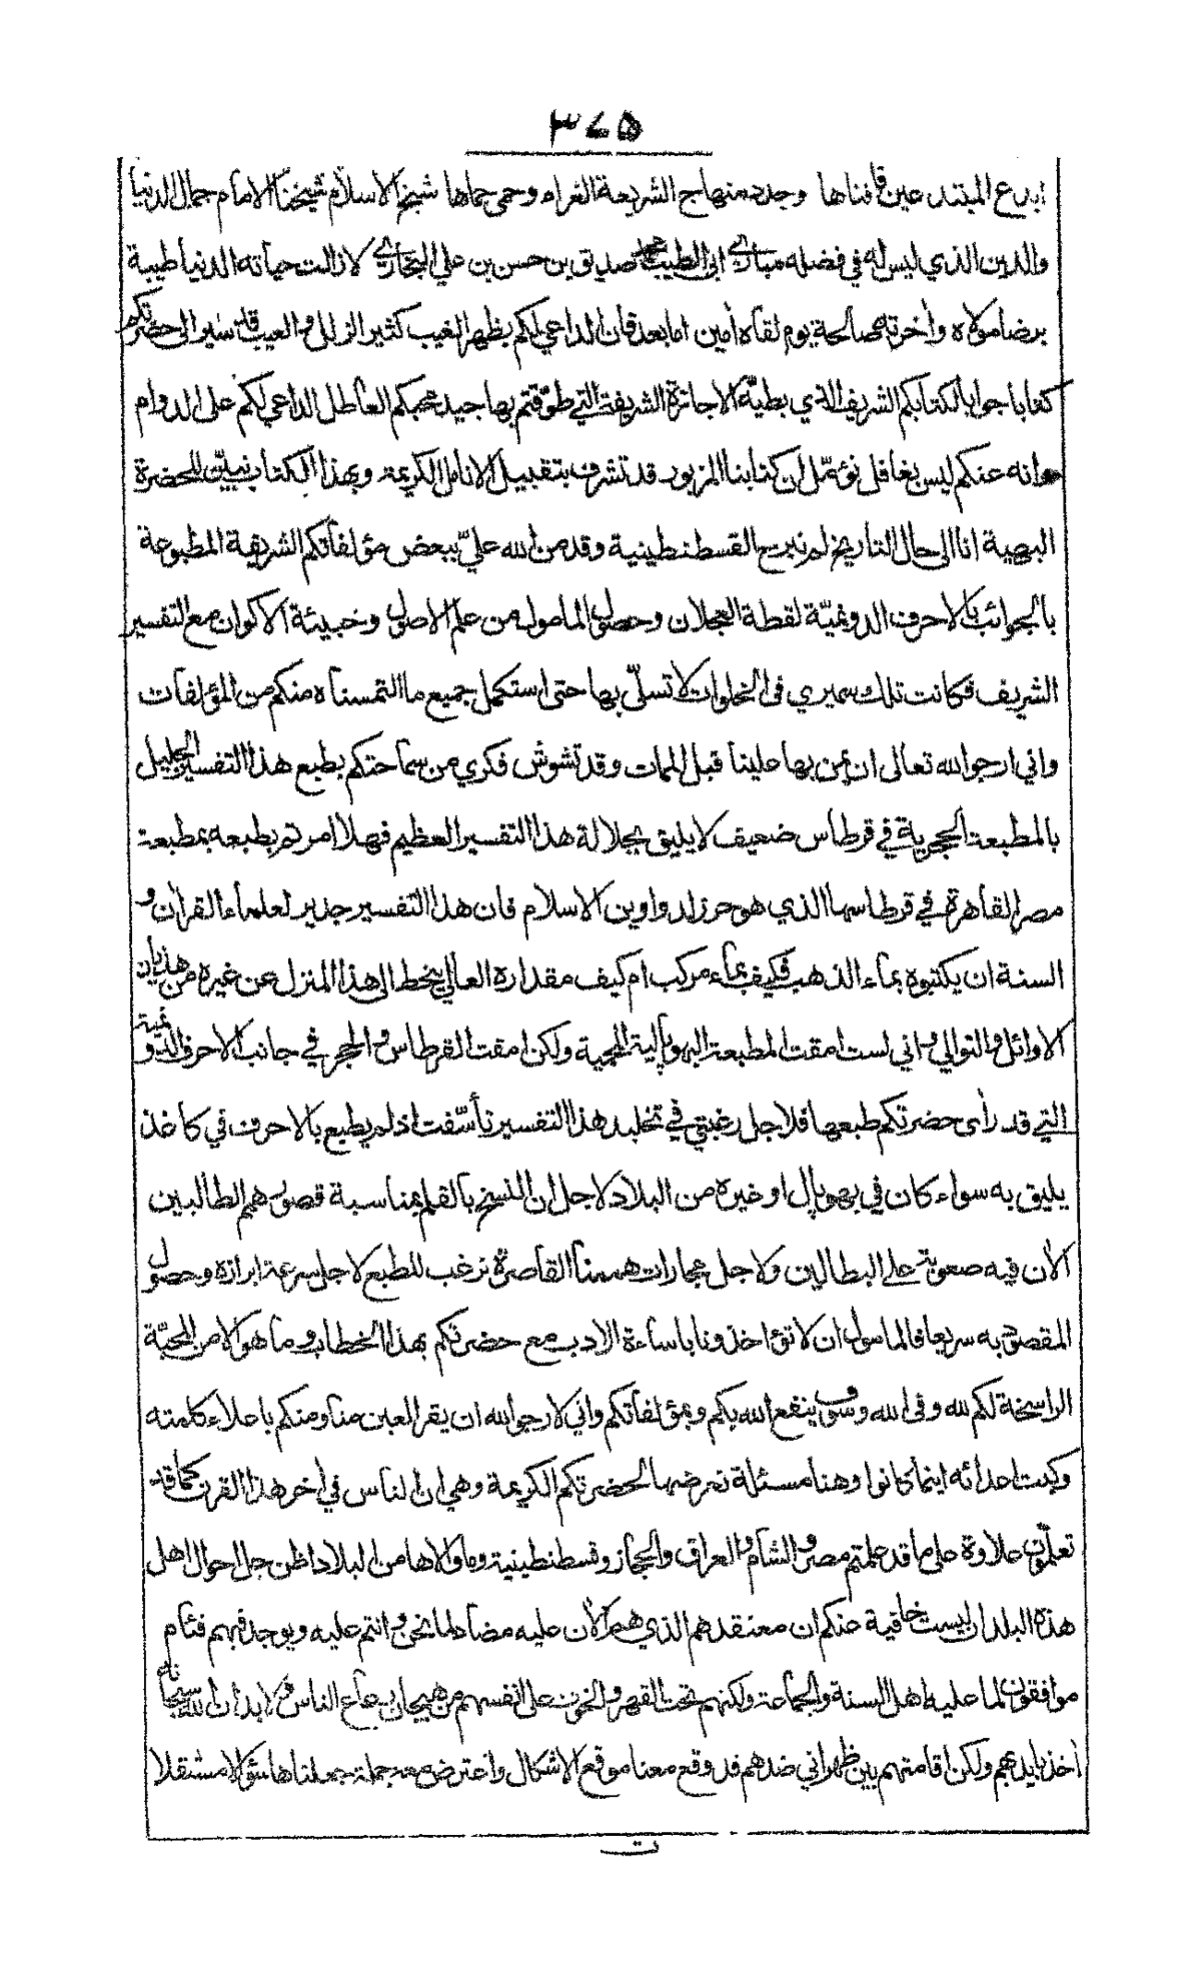 ٣٧٥
بدع المبتدعين فافناها وجدد منهاج الشريعة الغراء وحمى حماها شيخ الاسلام شيخنا الامام جمال الدنيا
والدين الذي ليس له في فضله مباري ابى الطيب محمد صديق بن حسن بن علي البخاري لا زالت حياته الدنيا طيبة
برضا مولاه وأخرته صالحة يوم لقاه أمين اما بعد فان الداعي لكم بظهر الغيب كثير الزلل والعيب قد سير الى حضرتكم
كتابا جوابا لكتابكم الشريف الذي بطيّه الاجازة الشريفة التي طوّقتم بها جيد محبكم العاطل الداعي لكم على الدوام
وانه عنكم ليس بغافل نؤمّل ان كتابنا المزبور قد تشرف بتقبيل الانامل الكريمة وبهذا الكتاب نبيّن للحضرة
البهية انا الى حال التاريخ لم نبرح القسطنطينية وقد من الله عليّ ببعض مؤلفاتكم الشريفة المطبوعة
بالجوائب بالاحرف الدوغميّة لقطة العجلان وحصول المامول من علم الاصول وخبيئة الاكوان مع التفسير
الشريف فكانت تلك سميري في الخلوات لاتسلّى بها حتى استكمل جميع ما التمسناه منكم من المؤلفات
واني ارجو الله تعالى ان يمن بها علينا قبل الممات وقد تشوش فكري من سماحتكم بطبع هذا التفسير الجليل
بالمطبعة الحجرية في قرطاس ضعيف لا يليق بجلالة هذا التفسير العظيم فهلا امرتم بطبعه بمطبعة
مصر القاهرة في قرطاسها الذي هو حرز لدواوين الاسلام فان هذا التفسير جدير لعلماء القران و
السنة ان يكتبوه بماء الذهب فكيف بماء مركب ام كيف مقداره العالي يخط الى هذا المنزل عن غيره من هذيان
الاوائل والتوالي واني لست امقت المطبعة البهوپالية المحمية ولكن امقت القرطاس والحجر في جانب الاحرف الدوغمية
التي قد رأى حضرتكم طبعها فلاجل رغبتي في تخليد هذا التفسير تأسّفت اذ لم يطبع بالاحرف في كاغذ
يليق به سواء كان في بهوپال او غيره من البلاد لاجل ان النسخ بالقلم بمناسبة قصور همم الطالبين
الأن فيه صعوبة على البطالين ولاجل مجارات هممنا القاصرة نرغب للطبع لاجل سرعة ابرازه وحصول
المقصود به سريعا فالماسول ان لا تؤاخذونا باساءة الادب مع حضرتكم بهذا الخطاب وما هو الا من المحبّة
الراسخة لكم لله وفى الله وسوف ينفع الله بكم وبمؤلفاتكم واني لارجو الله ان يقر العين منا ومنكم باعلاء كلمته
وكبت اعدائه اينما كانوا وهنا مسئلة نعرضها الحضرتكم الكريمة وهي ان الناس في أخر هذا القرن كما قد
تعلّق علاوة على ما قد علمتم مصر والشام والعراق والحجاز وقسطنطينية وما والاها من البلاد اظن جل احوال اهل
هذه البلدان ليست خافية عنكم ان معتقدهم الذي هم الأن عليه مضاد لما نحن وانتم عليه ويوجد فيهم فئام
موافقون لما عليه اهل السنة والجماعة ولكنهم تحت القهر والخوف على انفسهم من هيجان رعاع الناس ولا بد ان الله سبحانه
أخذ بايديهم ولكن اقامتهم بين ظهراني ضدهم قد وقع معنا موقع الاشكال واعترض معه جملة جعلناها سؤالا مستقلا
ت